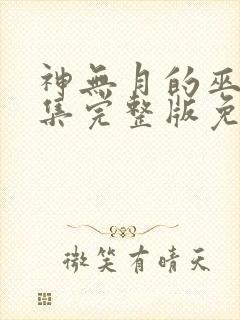 神無月的巫
集完整版免
微笑有晴天